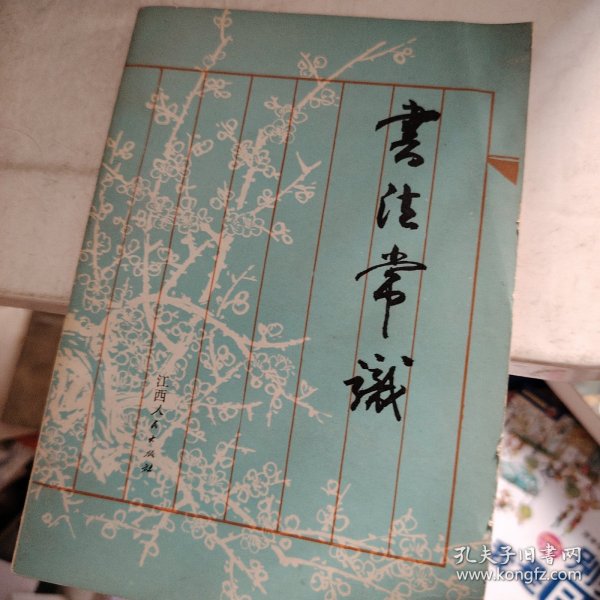 書法常識
江西人民出版社
孔夫子旧書网
www.kongfz.com